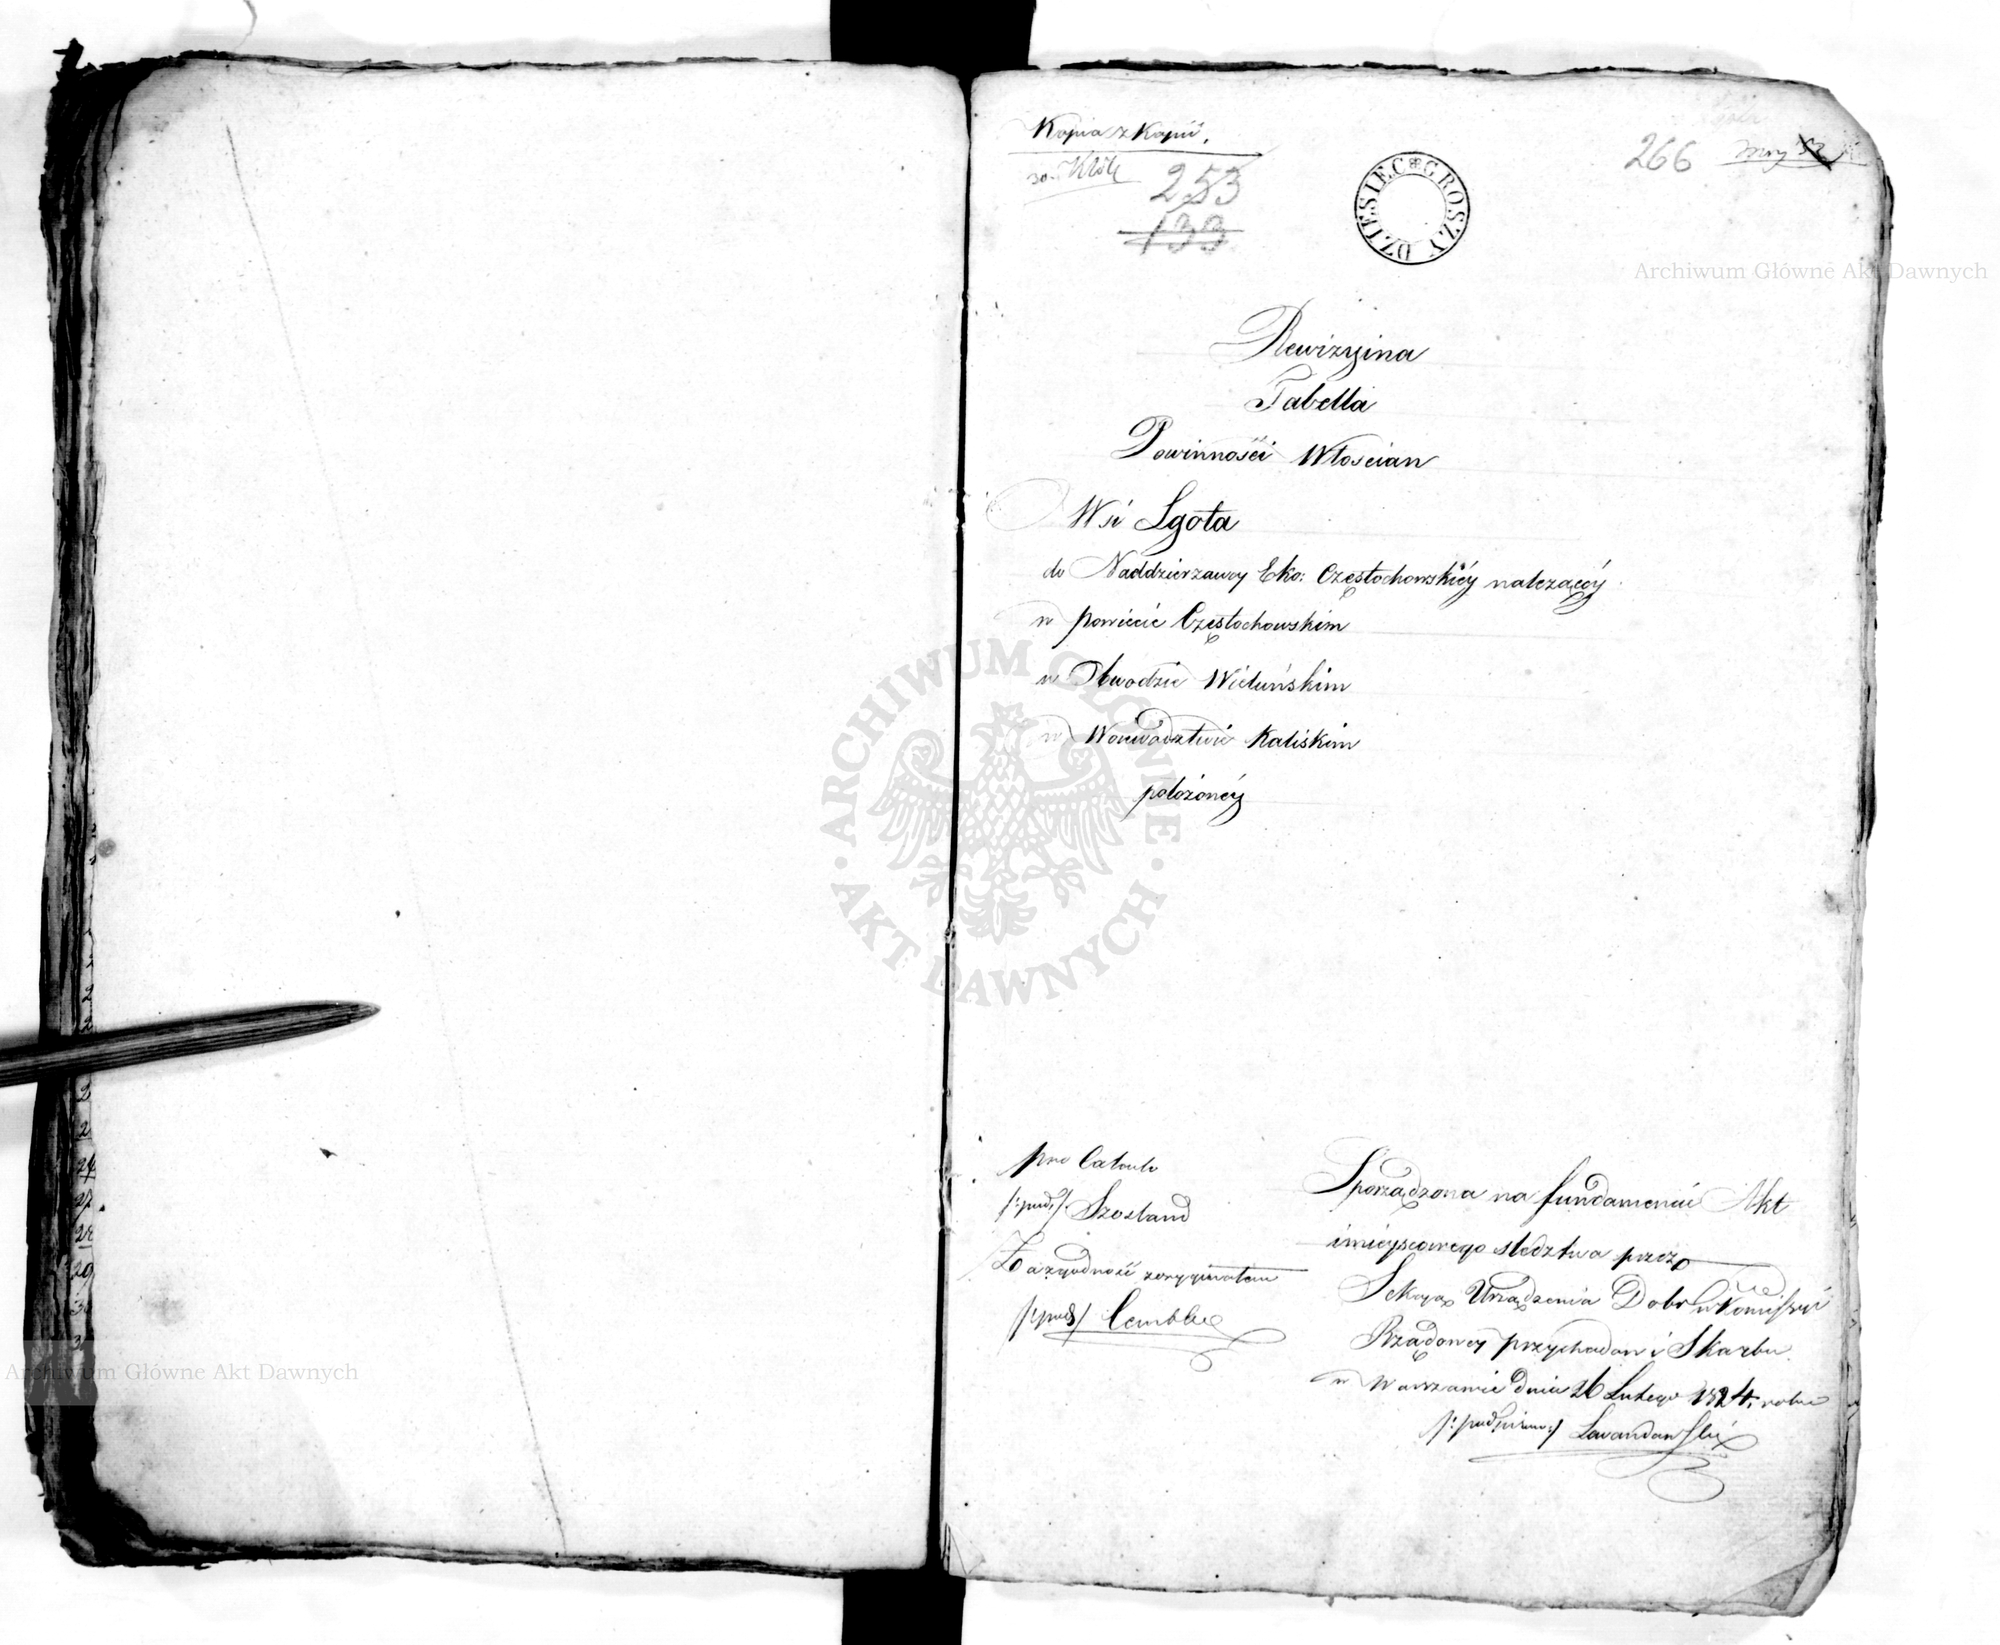 Kopia z Kopii.
253
133
DZIESIĘĆ GROSZY
266
Archiwum Główne Akt Dawnych
Rewizyina
Tabella
Powinności Włościan
Wsi Lgota
do Naddzierzawy Eko: Częstochowskiéy należącéy
w powiecie Częstochowskim
w Obwodzie Wieluńskim
w Woiewództwie Kaliskim
położonéy
ARCHIWUM GŁÓWNE AKT DAWNYCH
pro Calculo
/:pod:/ Szostand
Za zgodność z oryginałem
/:pod:/
Sporządzona na fundamencie Akt
i mieyscowego śledztwa przez
Sekcyą Urządzenia Dobr w Kommissyi
Rządowey przychodow i Skarbu
w Warszawie dnia 26 Lutego 1824 roku
/:podpisano:/ Lewandowski
24
27
28
29
Archiwum Główne Akt Dawnych